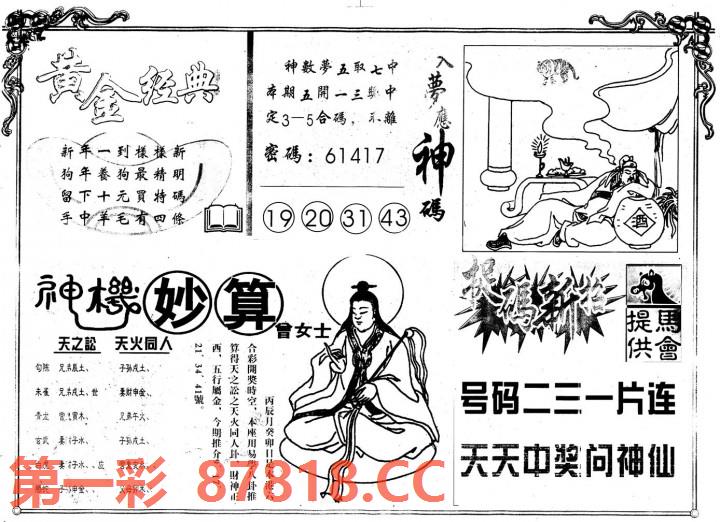 黄金经典
新年一到樣樣新
狗年養狗最精明
留下十元買特碼
手中羊毛有四條
神數夢五取七中
本期五開一三
中
定3—5合碼，不離
密碼：61417
19 20 31 43
入夢應神碼
酒
神機妙算
曾女士
天之訟 天火同人
勾陈 兄弟戌土、 子孙戌土、
朱雀 兄弟戌土、世 妻财申金、
青龙 寅木、 兄弟午火、
玄武 妻子水、 子孙戌土、
白虎 妻子水、应
子申金、
丙辰月癸卯日是本港六
合彩開獎時空，本座用易學八卦推
算得天之訟之天火同人卦，財神正
西，五行屬金，今期推介
21、34、41號。
捉碼新招
馬會提供
号码二三一片连
天天中奖问神仙
第一彩 87818.CC